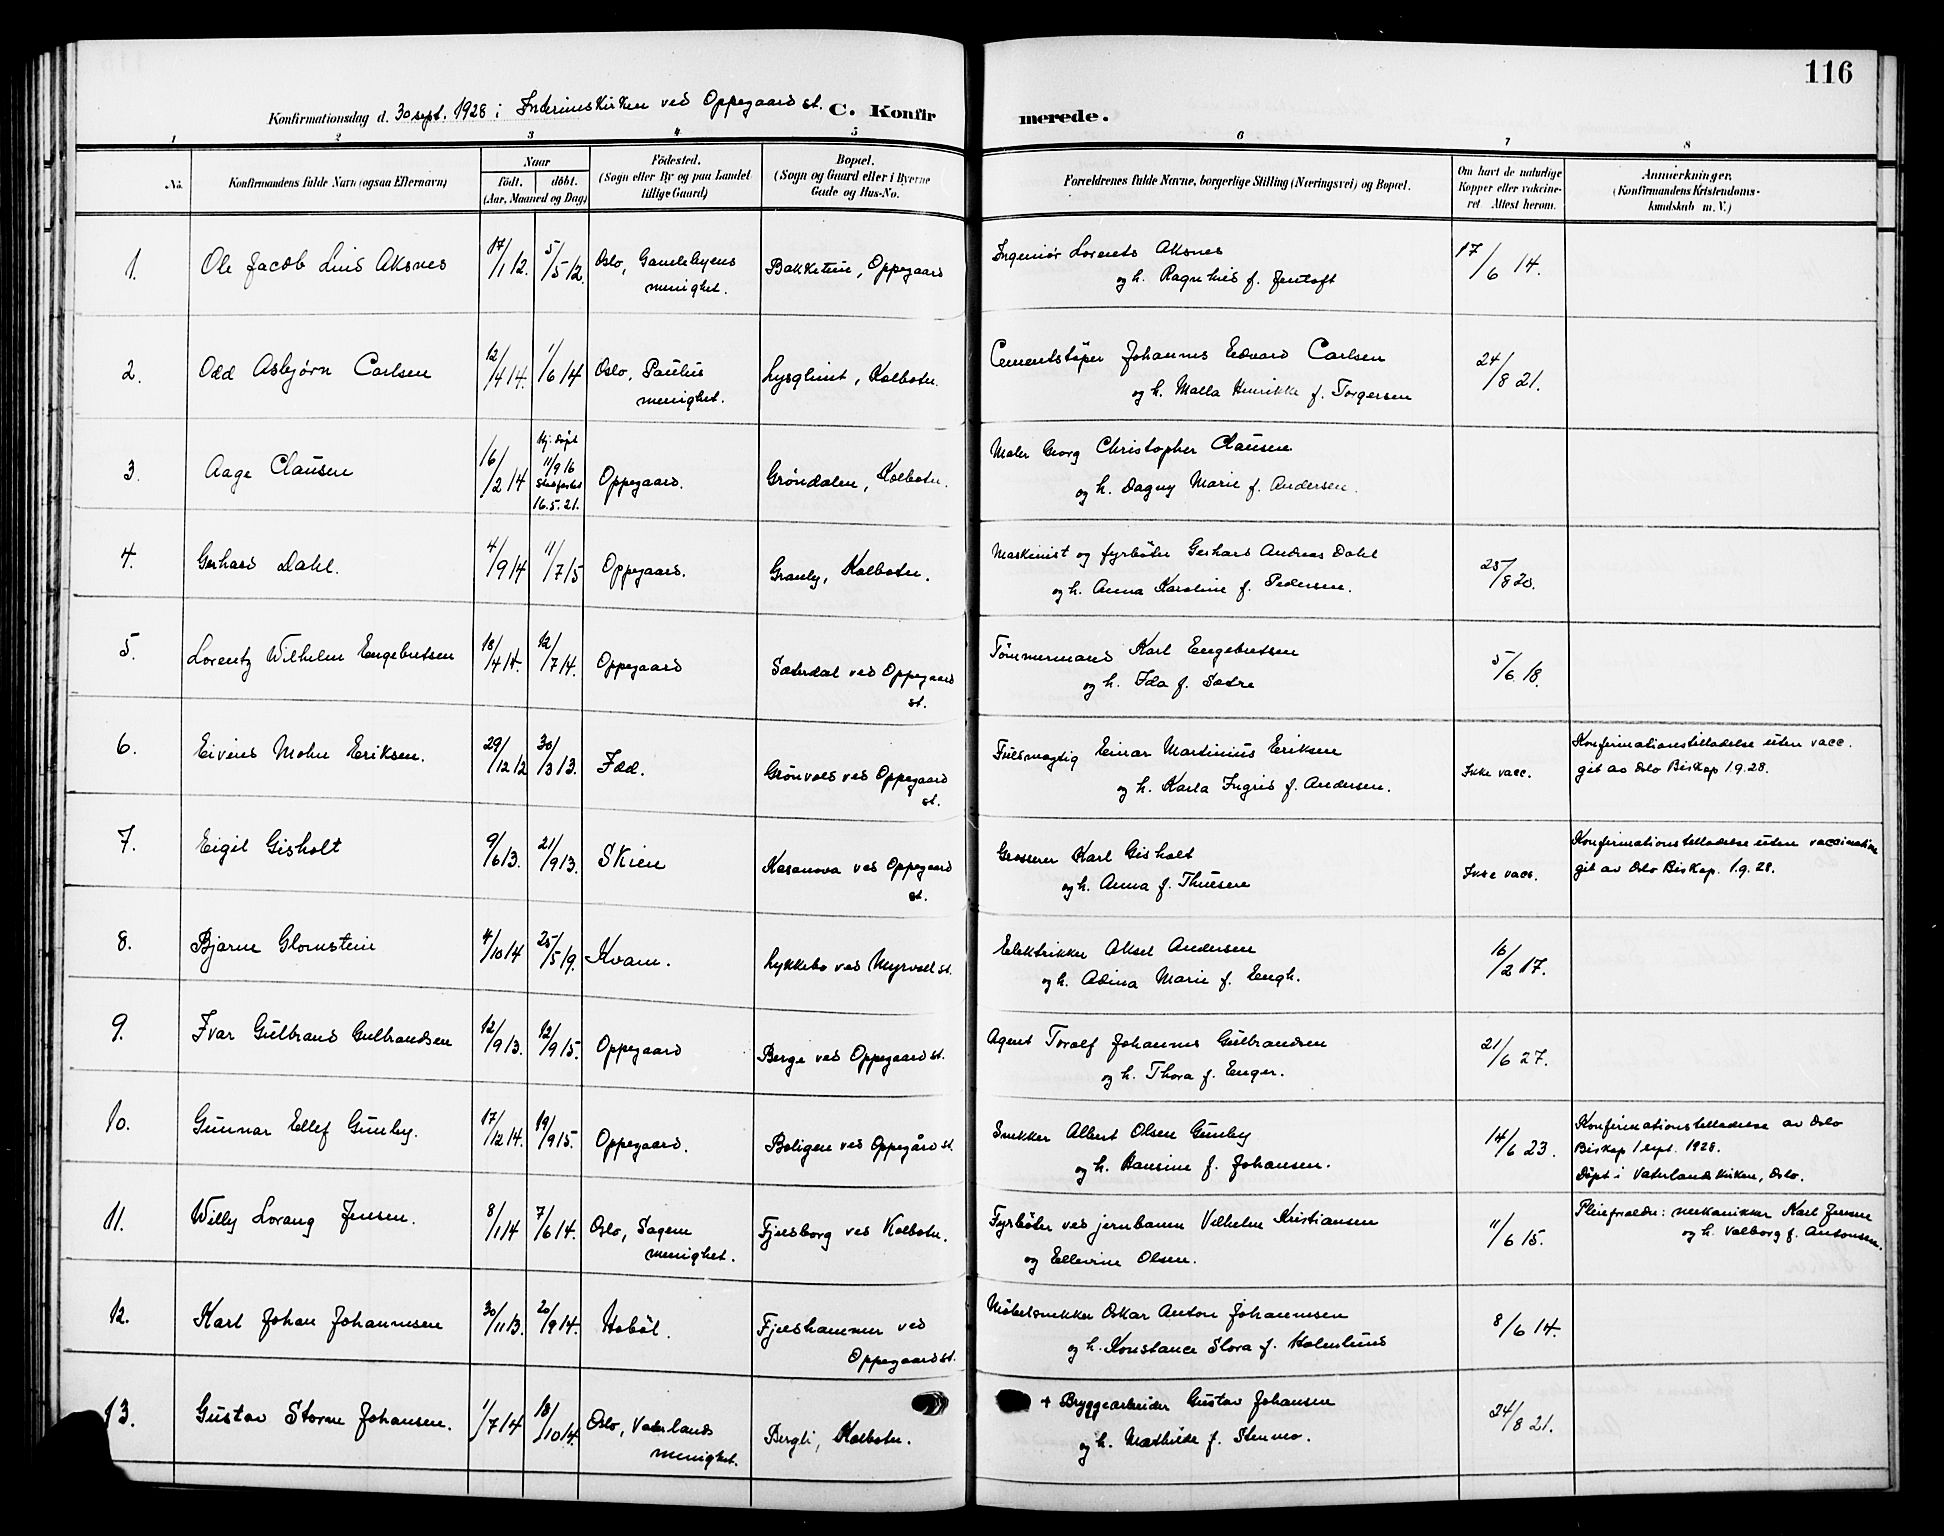 116
Konfirmationsdag d. 30 sept. 1928 i Interimskirken ved Oppegaard st. C. Konfirmerede.
1 2 3 4 5 6 7 8
No. Konfirmandens fulde Navn (ogsaa Efternavn) Naar födt. döbt. (Aar, Maaned og Dag) Födested. (Sogn eller By og paa Landet tillige Gaard) Bopæl. (Sogn og Gaard eller i Byerne Gade og Hus-No. Forældrenes fulde Navne, borgerlige Stilling (Næringsvei) og Bopæl. Om havt de naturlige Kopper eller vakcineret Attest herom. Anmærkninger. (Konfirmandens Kristendomskundskab m. V.)
1. Ole Jacob Lund Aksnes 17/1 12. 5/5 12. Oslo, Gamlebyens Bakketun, Oppegaard Ingeniør Lorents Aksnes 17/6 14.
menighet. og h. Ragnhild f. Jentoft
2. Odd Asbjørn Carlsen 12/4 14. 1/6 14 Oslo, Paulus Lysglimt, Kolbotn. Cementstøper Johannes Edvard Carlsen 24/8 21.
menighet. og h. Malla Henrikke f. Torgersen
3. Aage Clausen 16/2 14 Hj. døpt 11/9 16 Stadfestet 16.5.21. Oppegaard. Grøndalen, Kolbotn. Maler Georg Christopher Clausen
og h. Dagny Marie f. Andersen.
4. Gerhard Dahl. 4/9 14 11/7 15 Oppegaard. Granly, Kolbotn. Maskinist og fyrbøter Gerhard Andreas Dahl 25/8 20.
og h. Anna Karoline f. Pedersen.
5. Lorentz Wilhelm Engebretsen 18/4 14. 12/7 14. Oppegaard Sæterdal ved Oppegaard st. Tömmermand Karl Engebretsen 5/6 18.
og h. Ida f. Sætre
6. Eivind Mohn Eriksen. 29/12 12 30/3 13. Fæd. Grönvold ved Oppegaard st. Fuldmægtig Einar Martinius Eriksen Ikke vacc. Konfirmationstilladelse uten vacc.
og h. Karla Ingrid f. Andersen. git av Oslo Biskop 1.9.28.
7. Eigil Gisholt 9/6 13. 21/9 13. Skien Kasanova ved Oppegaard st. Grosserer Karl Gisholt Ikke vacc. Konfirmationstilladelse uten vaccination
og h. Anna f. Thuesen git av Oslo Biskop. 1.9.28.
8. Bjarne Glomstein 4/10 14 25/5 19. Kvam. Lykkebo ved Myrvoll st. Elektrikker Aksel Andersen 16/2 17.
og h. Adina Marie f. Engh.
9. Ivar Gulbrand Gulbrandsen 12/9 13. 12/9 15. Oppegaard Berge ved Oppegaard st. Agent Toralf Johannes Gulbrandsen 21/6 27.
og h. Thora f. Enger.
10. Gunnar Ellef Gunby. 17/12 14. 19/9 15. Oppegaard. Boligen ved Oppegård st. Snekker Albert Olsen Gunby 14/6 23. Konfirmationstilladelse av Oslo
og h. Hansine f. Johansen. Biskop 1 sept. 1928.
Döpt i Vaterlandskirken, Oslo.
11. Willy Lorang Jensen. 8/1 14 7/6 14. Oslo, Sagene Fjeldborg ved Kolbotn. Fyrbøter ved jernbanen Vilhelm Kristiansen 11/6 15. Pleieforældre: mekanikker Karl Jensen
menighet. og Ellevine Olsen. og h. Valborg f. Antonsen.
12. Karl Johan Johannesen 30/11 13. 20/9 14. Hobøl. Fjeldhammer ved Oppegaard st. Möbelsnekker Oskar Anton Johannesen 8/6 14.
og h. Konstance Slora f. Holmlund
13. Gustav Storm Johansen. 1/7 14 18/10 14. Oslo, Vaterlands Bergli, Kolbotn. + Bryggearbeider Gustav Johansen 24/8 21.
menighet. og h. Mathilde f. Stenmo.